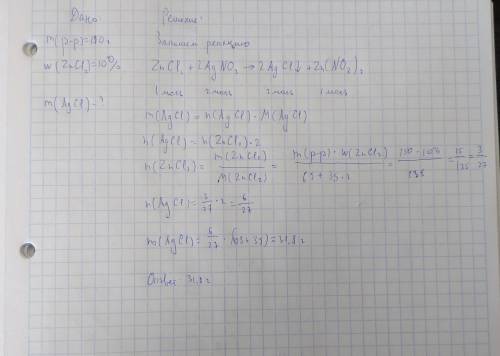 Дано:
m(р-р)=150г
w(ZnCl₂)=10%
m(AgCl)-?
Решение:
Запишем реакцию
ZnCl₂ + 2AgNO₃ → 2AgCl↓ + Zn(NO₃)₂
1 моль 2 моль 2 моль 1 моль
m(AgCl) = n(AgCl) · M(AgCl)
n(AgCl) = n(ZnCl₂) · 2
n(ZnCl₂) = m(ZnCl₂)/M(ZnCl₂) = m(р-р) · w(ZnCl₂)/65+35·2 = 150 · 10%/135 = 15/135 = 3/27
n(AgCl) = 3/27 · 2 = 6/27
m(AgCl) = 6/27 · ( +35) = 31,8 г
Ответ 31,8 г